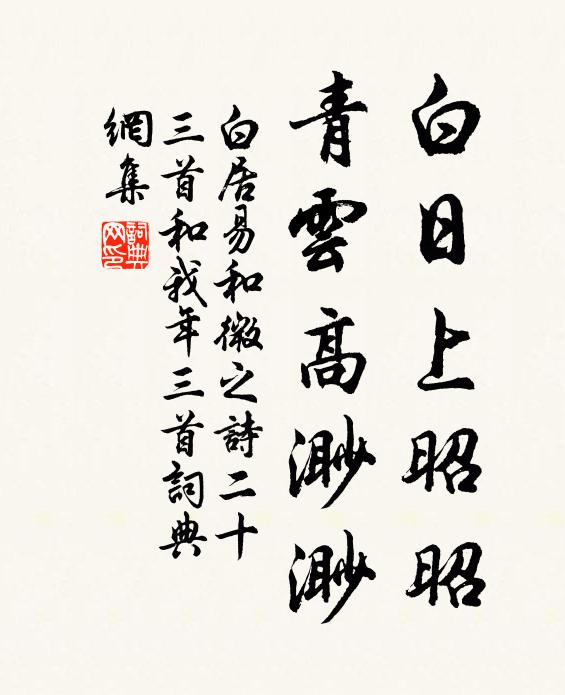 白日上昭昭
青雲高渺渺
白居易和微之詩二十
三首和我年三首詞典
網集
詞典
网印